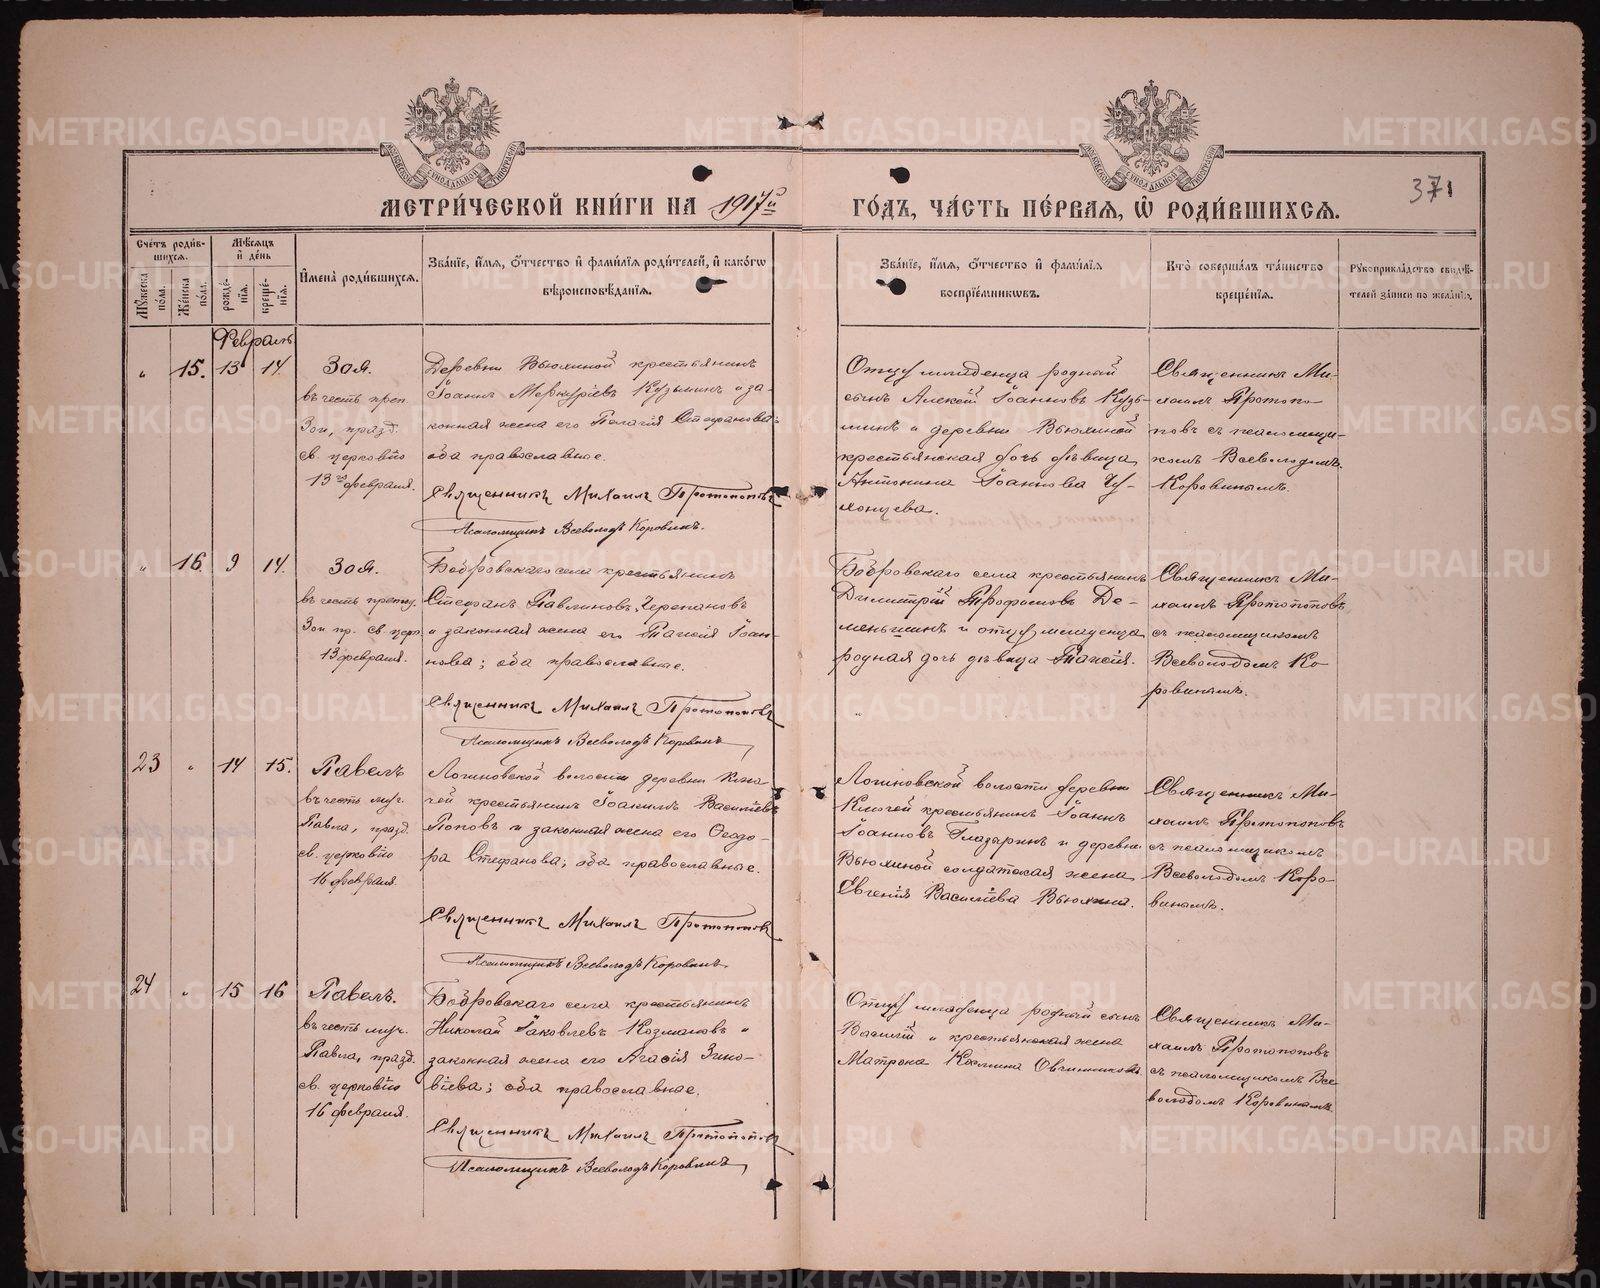 МЕТРИ́ЧЕСКОЙ КНИ́ГИ НА 1917й ГО́ДЪ, ЧА́СТЬ ПЕ́РВАЯ, Ѿ РОДИ́ВШИХСЯ.
371
Сче́тъ роди́в-
шихся.
Му́жеска по́ла.
Же́нска по́ла.
Мѣ́сяцъ
и҆ де́нь
рожде́-
нія.
креще́-
нія.
И҆мена̀ роди́вшихся.
Зва́ніе, и҆́мя, ѻ҆́тчество и҆ фами́лія роди́телей, и҆ како́гѡ
вѣроисповѣ́данія.
Зва́ніе, и҆́мя, ѻ҆́тчество и҆ фами́лія
воспріе́мникѡвъ.
Кто̀ соверша́лъ та́инство
креще́нія.
Рꙋкоприкла́дство свидѣ́-
телей за́писи по жела́нію.
Февраль
" 15. 13 14.
Зоя.
въ честь преп.
Зои, празд.
св. церковію
13го февраля.
Деревни Вьюхиной крестьянинъ
Іоаннъ Меркуріевъ Кузьминъ и за-
конная жена его Пелагія Стефанова;
оба православные.
Священникъ Михаилъ Протопоповъ
Псаломщикъ Всеволодъ Коровинъ.
Отцу младенца родный
сынъ Алексій Іоанновъ Кузь-
минъ и деревни Вьюхиной
крестьянская дочь дѣвица
Антонина Іоаннова Чу-
хонцева.
Священникъ Ми-
хаилъ Протопо-
повъ съ псаломщи-
комъ Всеволодомъ
Коровинымъ.
" 16. 9 14.
Зоя.
въ честь препод.
Зои пр. св. церк.
13 февраля.
Бобровскаго села крестьянинъ
Стефанъ Павлиновъ Черепановъ
и законная жена его Таисія Іоан-
нова; оба православные.
Священникъ Михаилъ Протопоповъ
Псаломщикъ Всеволодъ Коровинъ
Бобровскаго села крестьянинъ
Димитрій Трофимовъ Де-
меньшинъ и отцу младенца
родная дочь дѣвица Таисія.
Священникъ Ми-
хаилъ Протопоповъ
съ псаломщикомъ
Всеволодомъ Ко-
ровинымъ.
23 " 14 15.
Павелъ
въ честь муч.
Павла, празд.
св. церковію
16 февраля.
Логиновской волости деревни Клю-
чей крестьянинъ Іоакимъ Васильевъ
Поповъ и законная жена его Ѳеодо-
ра Стефанова; оба православные.
Священникъ Михаилъ Протопоповъ
Псаломщикъ Всеволодъ Коровинъ.
Логиновской волости деревни
Ключей крестьянинъ Іоаннъ
Іоанновъ Глазыринъ и деревни
Вьюхиной солдатская жена
Евгенія Васильева Вьюхина.
Священникъ Ми-
хаилъ Протопоповъ
съ псаломщикомъ
Всеволодомъ Коро-
винымъ.
24 " 15 16
Павелъ.
въ честь муч.
Павла, празд.
св. церковію
16 февраля.
Бобровскаго села крестьянинъ
Николай Іаковлевъ Козмановъ и
законная жена его Агафія Зино-
віева; оба православные.
Священникъ Михаилъ Протопоповъ
Псаломщикъ Всеволодъ Коровинъ,
Отцу младенца родный сынъ
Василій и крестьянская жена
Матрона Космина Овчинникова.
Священникъ Ми-
хаилъ Протопоповъ
съ псаломщикомъ Все
володомъ Коровинымъ.
METRIKI.GASO-URAL.RU